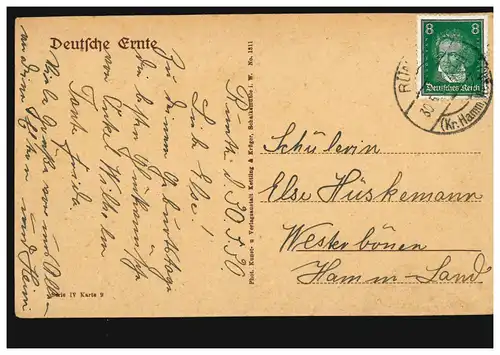 Deutsche Ernte
Rünthe d. 30.5.30.
Liebe Else!
Zu deinem Geburtstage
die besten Glückwünsche
von Onkel Wilhelm
Tante Frieda.
Viele Grüße von uns Allen
an deine Eltern und Heini
Serie IV Karte 9
Phot. Kunst- u. Verlagsanstalt Kettling & Krüger, Schalksmühle i. W. No. 1511
8 8
Deutsches Reich
RÜN
30.5
(Kr. Hamm,
Schülerin
Else Hüskemann
Westerbönen
Hamm-Land